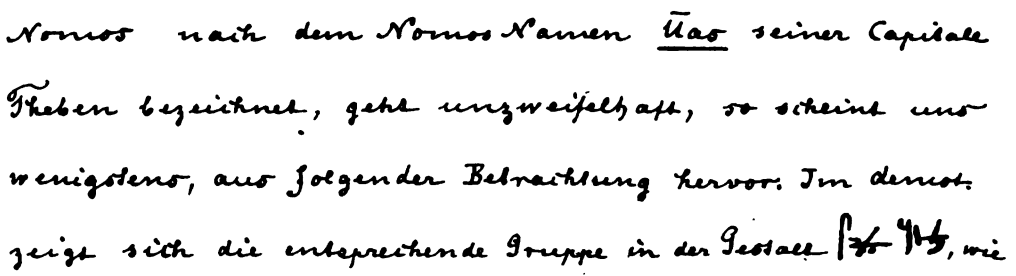 Nomos nach dem Nomos Namen Ūas seiner Capitale
Theben bezeichnet, geht unzweifelhaft, so scheint uns
wenigstens, aus folgender Betrachtung hervor. Im demot.
zeigt sich die entsprechende Gruppe in der Gestalt , wie